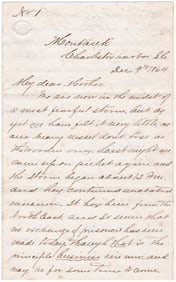 No 1
Montauk
Charleston harbor S.C.
Dec 9th /64
My dear Mother
We are now in the midst of
a most fearful storm, but as
yet we have felt it very little, as
our heavy vessel dont toss as
the wooden ones. Last night we
came off on picket again and
the storm began about 12
and has continued
It has been from the
North East and so severe that
no exchange of prisoners has been
made today, though that is the
principle business here now, and
may be for some time to come